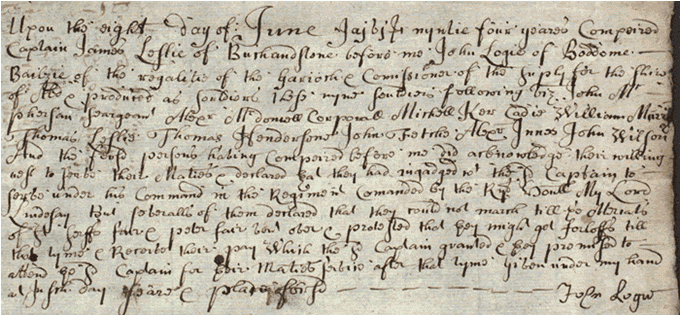 Upon the eight day of June Jajvjt nyntie four yeares Compeired
Captain James Leslie of Buchandstone before me John Logie of Boddome
Bailzie of the regalitie of the Garioch & Comissioner of the Supply for the shire
of Abd & produced as sordiors these nyne souldiers following viz. John Mc
phersan Seargeant Alexr McDonnell Corporall Mitchell Ker Cadie William Murray
Thomas Leslie Thomas Hendersone John Fetche Alexr Innes John Wilson
And the forsd persons having Compeired before me did acknowledge their willing
nes to serve their Maties & declared that they had ingadged wt the sd Captain to
serve under his Command in the Regiment Comanded by the Rt Honll My Lord
Lindesay but severalls of them declared that they could not march till ye
of St serffs fair & peter fair wer over & protested that they might get forloffs till
that tyme & Receive their pay Which the sd Captain granted & they promised to
attend the sd Captain for their Maties service after that tyme Given under my hand
at Insch day yeare & place forsd
John Logie